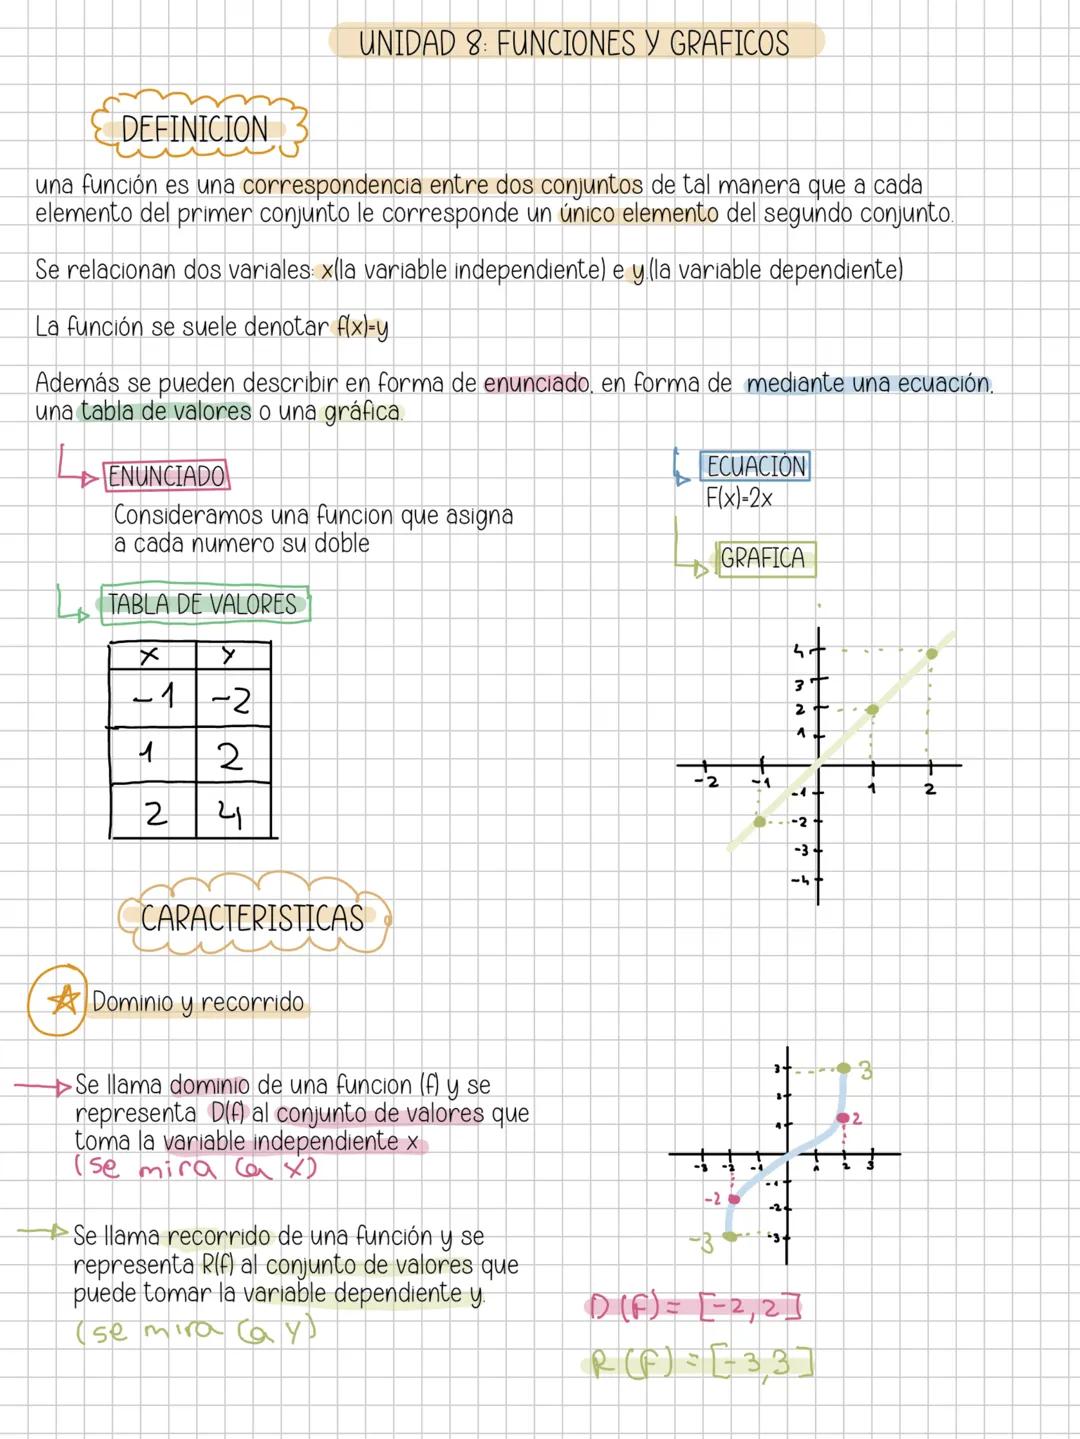 UNIDAD 8: FUNCIONES Y GRAFICOS
DEFINICION
una función es una correspondencia entre dos conjuntos de tal manera que a cada
elemento del primer conjunto le corresponde un único elemento del segundo conjunto.
Se relacionan dos variales: x(la variable independiente) e y.(la variable dependiente)
La función se suele denotar f(x)=y
Además se pueden describir en forma de enunciado, en forma de mediante una ecuación,
una tabla de valores o una gráfica.
ENUNCIADO
Consideramos una funcion que asigna
a cada numero su doble
ECUACIÓN
F(x)=2x
GRAFICA
TABLA DE VALORES
x y
-1 -2
1 2
2 4
4
3
2
1
-2 -1 1 2
-1
-2
-3
-4
CARACTERISTICAS
Dominio y recorrido
Se llama dominio de una funcion (f) y se
representa D(f) al conjunto de valores que
toma la variable independiente x
(se mira la x)
Se llama recorrido de una función y se
representa R(f) al conjunto de valores que
puede tomar la variable dependiente y.
(se mira la y)
3 3
2
1 2
-3 -2 -1 1 2 3
-1
-2 -2
-3 -3
D(F)= [-2,2]
R(F)=[-3,3]